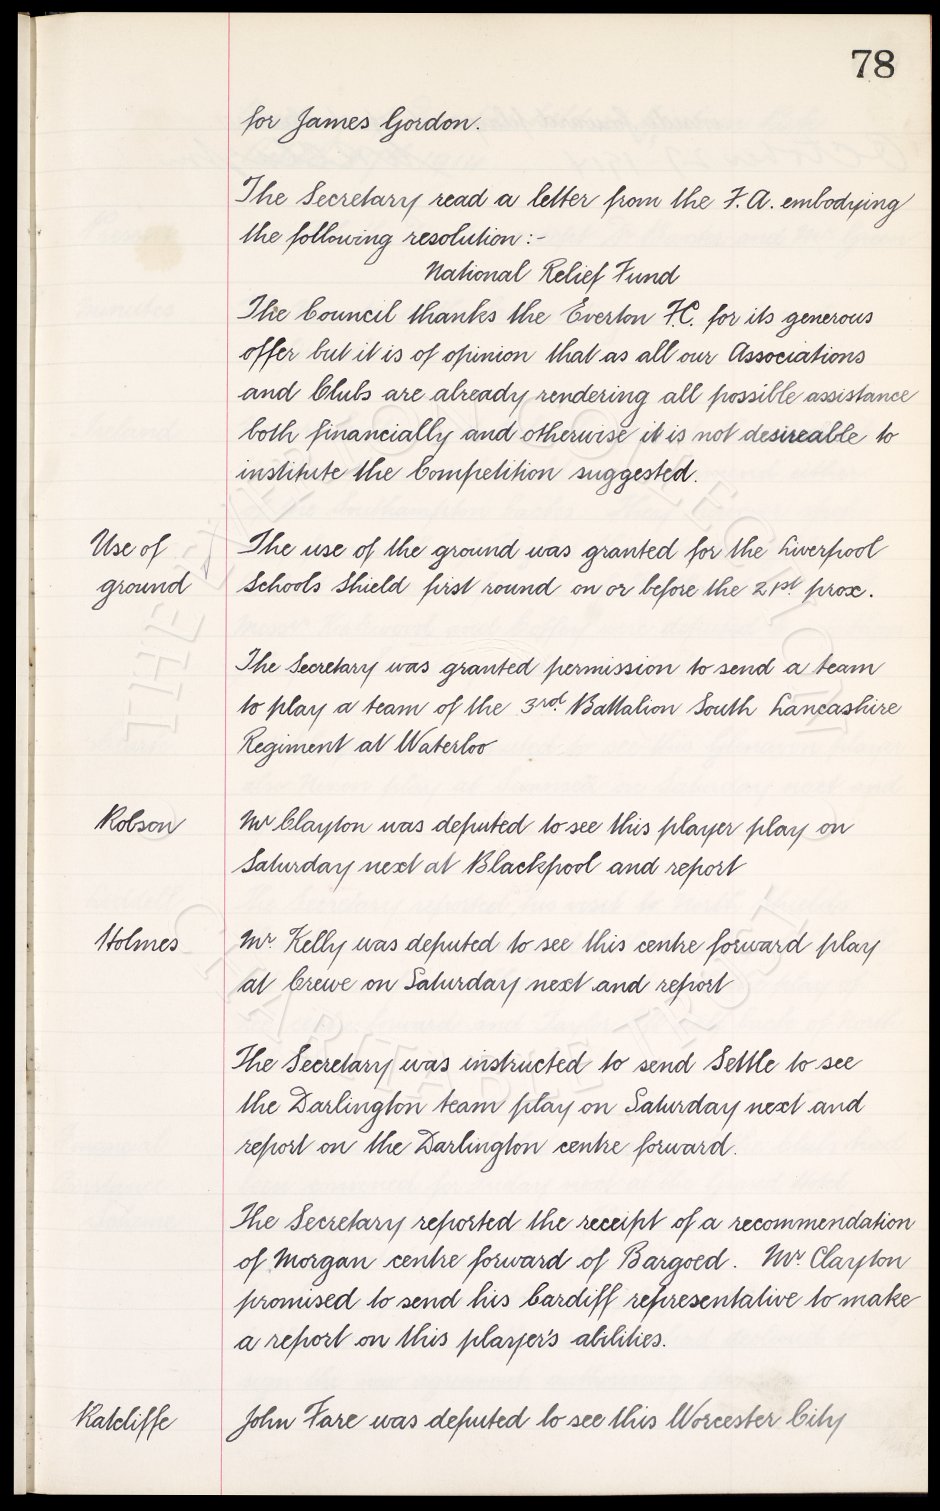 78
for James Gordon.
The Secretary read a letter from the F.A. embodying
the following resolution :-
National Relief Fund
The Council thanks the Everton F.C. for its generous
offer but it is of opinion that as all our Associations
and Clubs are already rendering all possible assistance
both financially and otherwise it is not desireable to
institute the Competition suggested.
Use of
ground
The use of the ground was granted for the Liverpool
Schools Shield first round on or before the 21st prox.
The Secretary was granted permission to send a team
to play a team of the 3rd Battalion South Lancashire
Regiment at Waterloo
Robson
Mr Clayton was deputed to see this player play on
Saturday next at Blackpool and report
Holmes
Mr. Kelly was deputed to see this centre forward play
at Crewe on Saturday next and report
The Secretary was instructed to send Settle to see
the Darlington team play on Saturday next and
report on the Darlington centre forward.
The Secretary reported the receipt of a recommendation
of Morgan centre forward of Bargoed. Mr. Clayton
promised to send his Cardiff representative to make
a report on this player's abilities.
Ratcliffe
John Fare was deputed to see this Worcester City
THE EVERTON COLLECTION
CHARITABLE TRUST